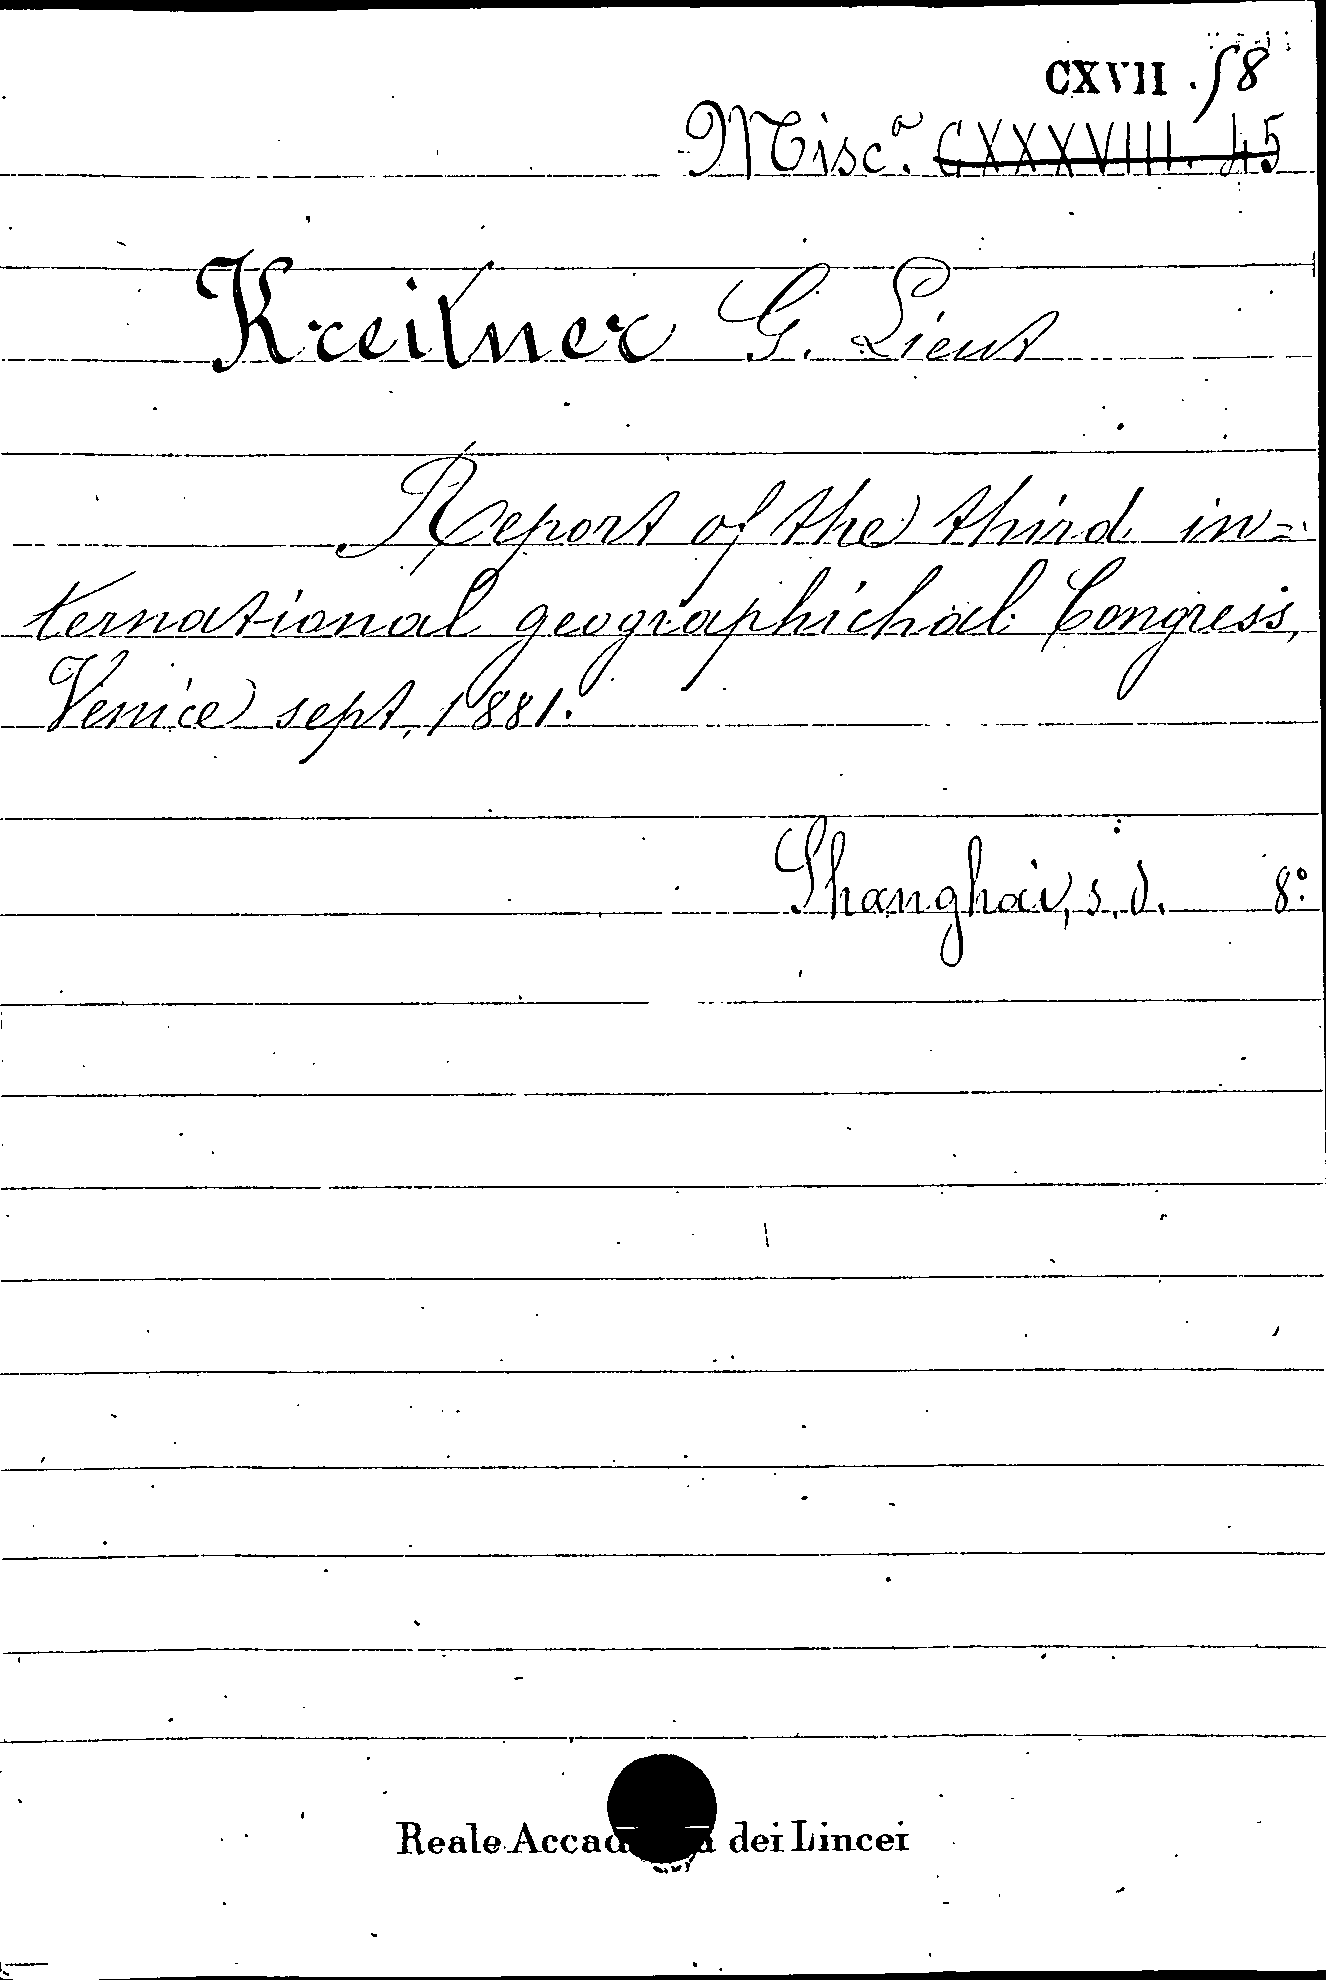 CXVII . 58
Misc.ª CXXXVIII. 45
Kreitner G. Lieut
Report of the third in=
ternational geographichal Congress,
Venice sept, 1881.
Shanghai, s. d. 8°
Reale Accad a dei Lincei